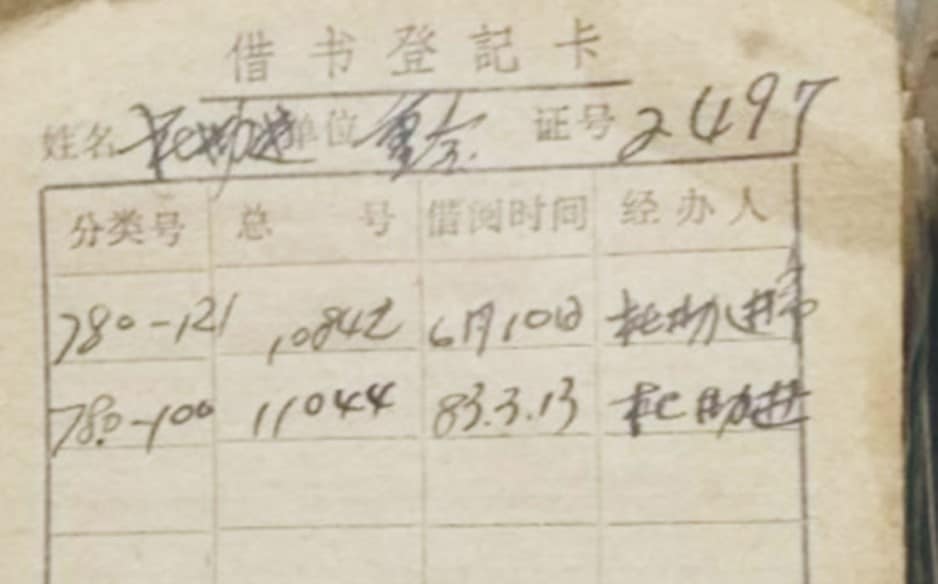 借书登記卡
姓名 单位 证号 2497
分类号 总号 借阅时间 经办人
780-121 10842 6月10日
780-100 11044 83.3.13